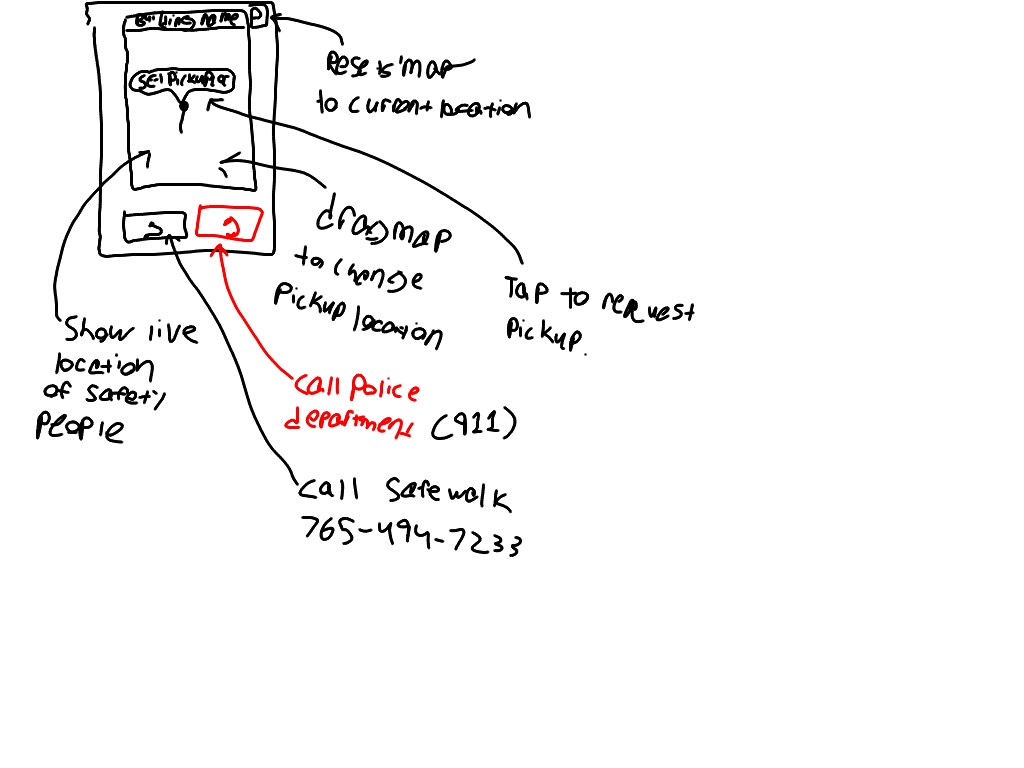 Building name
P
Set Pickup
Resets map
to current location
drag map
to change
Pickup location
Tap to request
Pickup.
Show live
location
of safety
People
call Police
department (911)
call Safewalk
765-494-7233